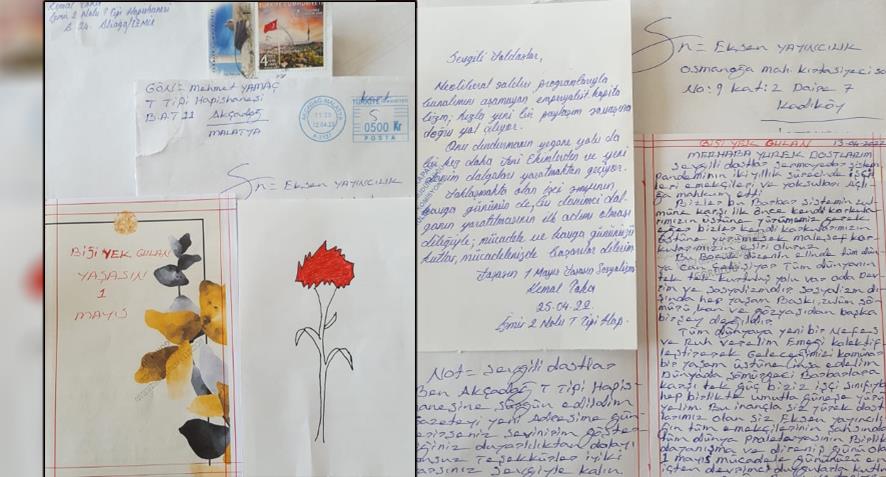 Kemal Kaka
İzmir 2 Nolu T Tipi Hapishanesi
GÖN= Mehmet YAMAÇ
T Tipi Hapishanesi
B.A.T 11 Akçadağ
MALATYA
4
0500 Kr
POSTA
Sn= Eksen YAYINCILIK
BİJİ YEK GULAN
YAŞASIN
1
MAYIS
Sevgili Yoldaşlar,
Neoliberal saldırı programlarıyla
bunalımını aşamayan emperyalist kapita
lizm, hızla yeni bir paylaşım savaşına
doğru yol alıyor.
Onu durdurmanın yegane yolu da
bir kez daha yeni Ekimlerden ve yeni
devrim dalgaları yaratmaktan geçiyor.
Yaklaşmakta olan işçi sınıfının
kavga gününün de bu devrimci dal-
ganın yaratılmasının ilk adımı olması
dileğiyle; mücadele ve kavga gününüzü
kutlar, mücadelenizde başarılar dilerim
Yaşasın 1 Mayıs Yaşasın Sosyalizm
Kemal Kaka
25.04.22
İzmir 2 Nolu T Tipi Hap.
Not= Sevgili dostlar
Ben Akçadağ T Tipi Hapis-
hanesine sürgün edildim
Gazeteyi yeni Adresime gön-
derirseniz Sevinirim Göster
diğiniz duyarlılıktan dolayı
Teşekkürler iyiki
varsınız Sevgiyle kalın
Sn= Eksen YAYINCILIK
Osmanağa mah. Kırtasiyeci so
No: 9 Kat: 2 Daire 7
Kadıköy
BİJİ YEK GULAN 13-04-2022
MERHABA YÜREK DOSTLARIM
Sevgili dostlar Sermayesiz
Pandeminin iki yıllık sürecinde işçi
leri emekçileri ve yoksulları Açlı
ğa mahkum etti
Bizler bu Barbar Sistemin zul-
müne karşı ilk önce kendi korkula-
rımızın üstüne yürümemiz gerekir
eğer bizler kendi korkularımızın
üstüne yürümezsek malesef kor-
kularımızın esiri oluruz.
Bu Bozuk düzenin elinde tüm dün-
ya can Çekişiyor Tüm dünyanın
tek tek kurtuluş yolu var oda Dev
rim ve sosyalizmdir sosyalizm dı-
şında hep yaşam Baskı zulüm sö-
mürü kan ve gözyaşından başka
birşey değildir
Tüm dünyaya yeni bir Nefes
ve Ruh verelim Emeği kolektif
leştirerek Geleceğimizi komünal
bir yaşam üstüne inşa edelim
Dünyada sömürgeci Barbarlara
karşı tek güç biziz işçi sınıfıyla
hep birlikte umutla güneşe yürü
yelim Bu inançla siz yürek dost-
larımız olan siz Eksen yayıncılı-
ğın tüm emekçilerinin şahsında
Tüm dünya Proletaryasının Birlik
dayanışma ve direniş günü olan
1 mayıs mücadele gününüzü en
içten devrimci duygularla kutlar